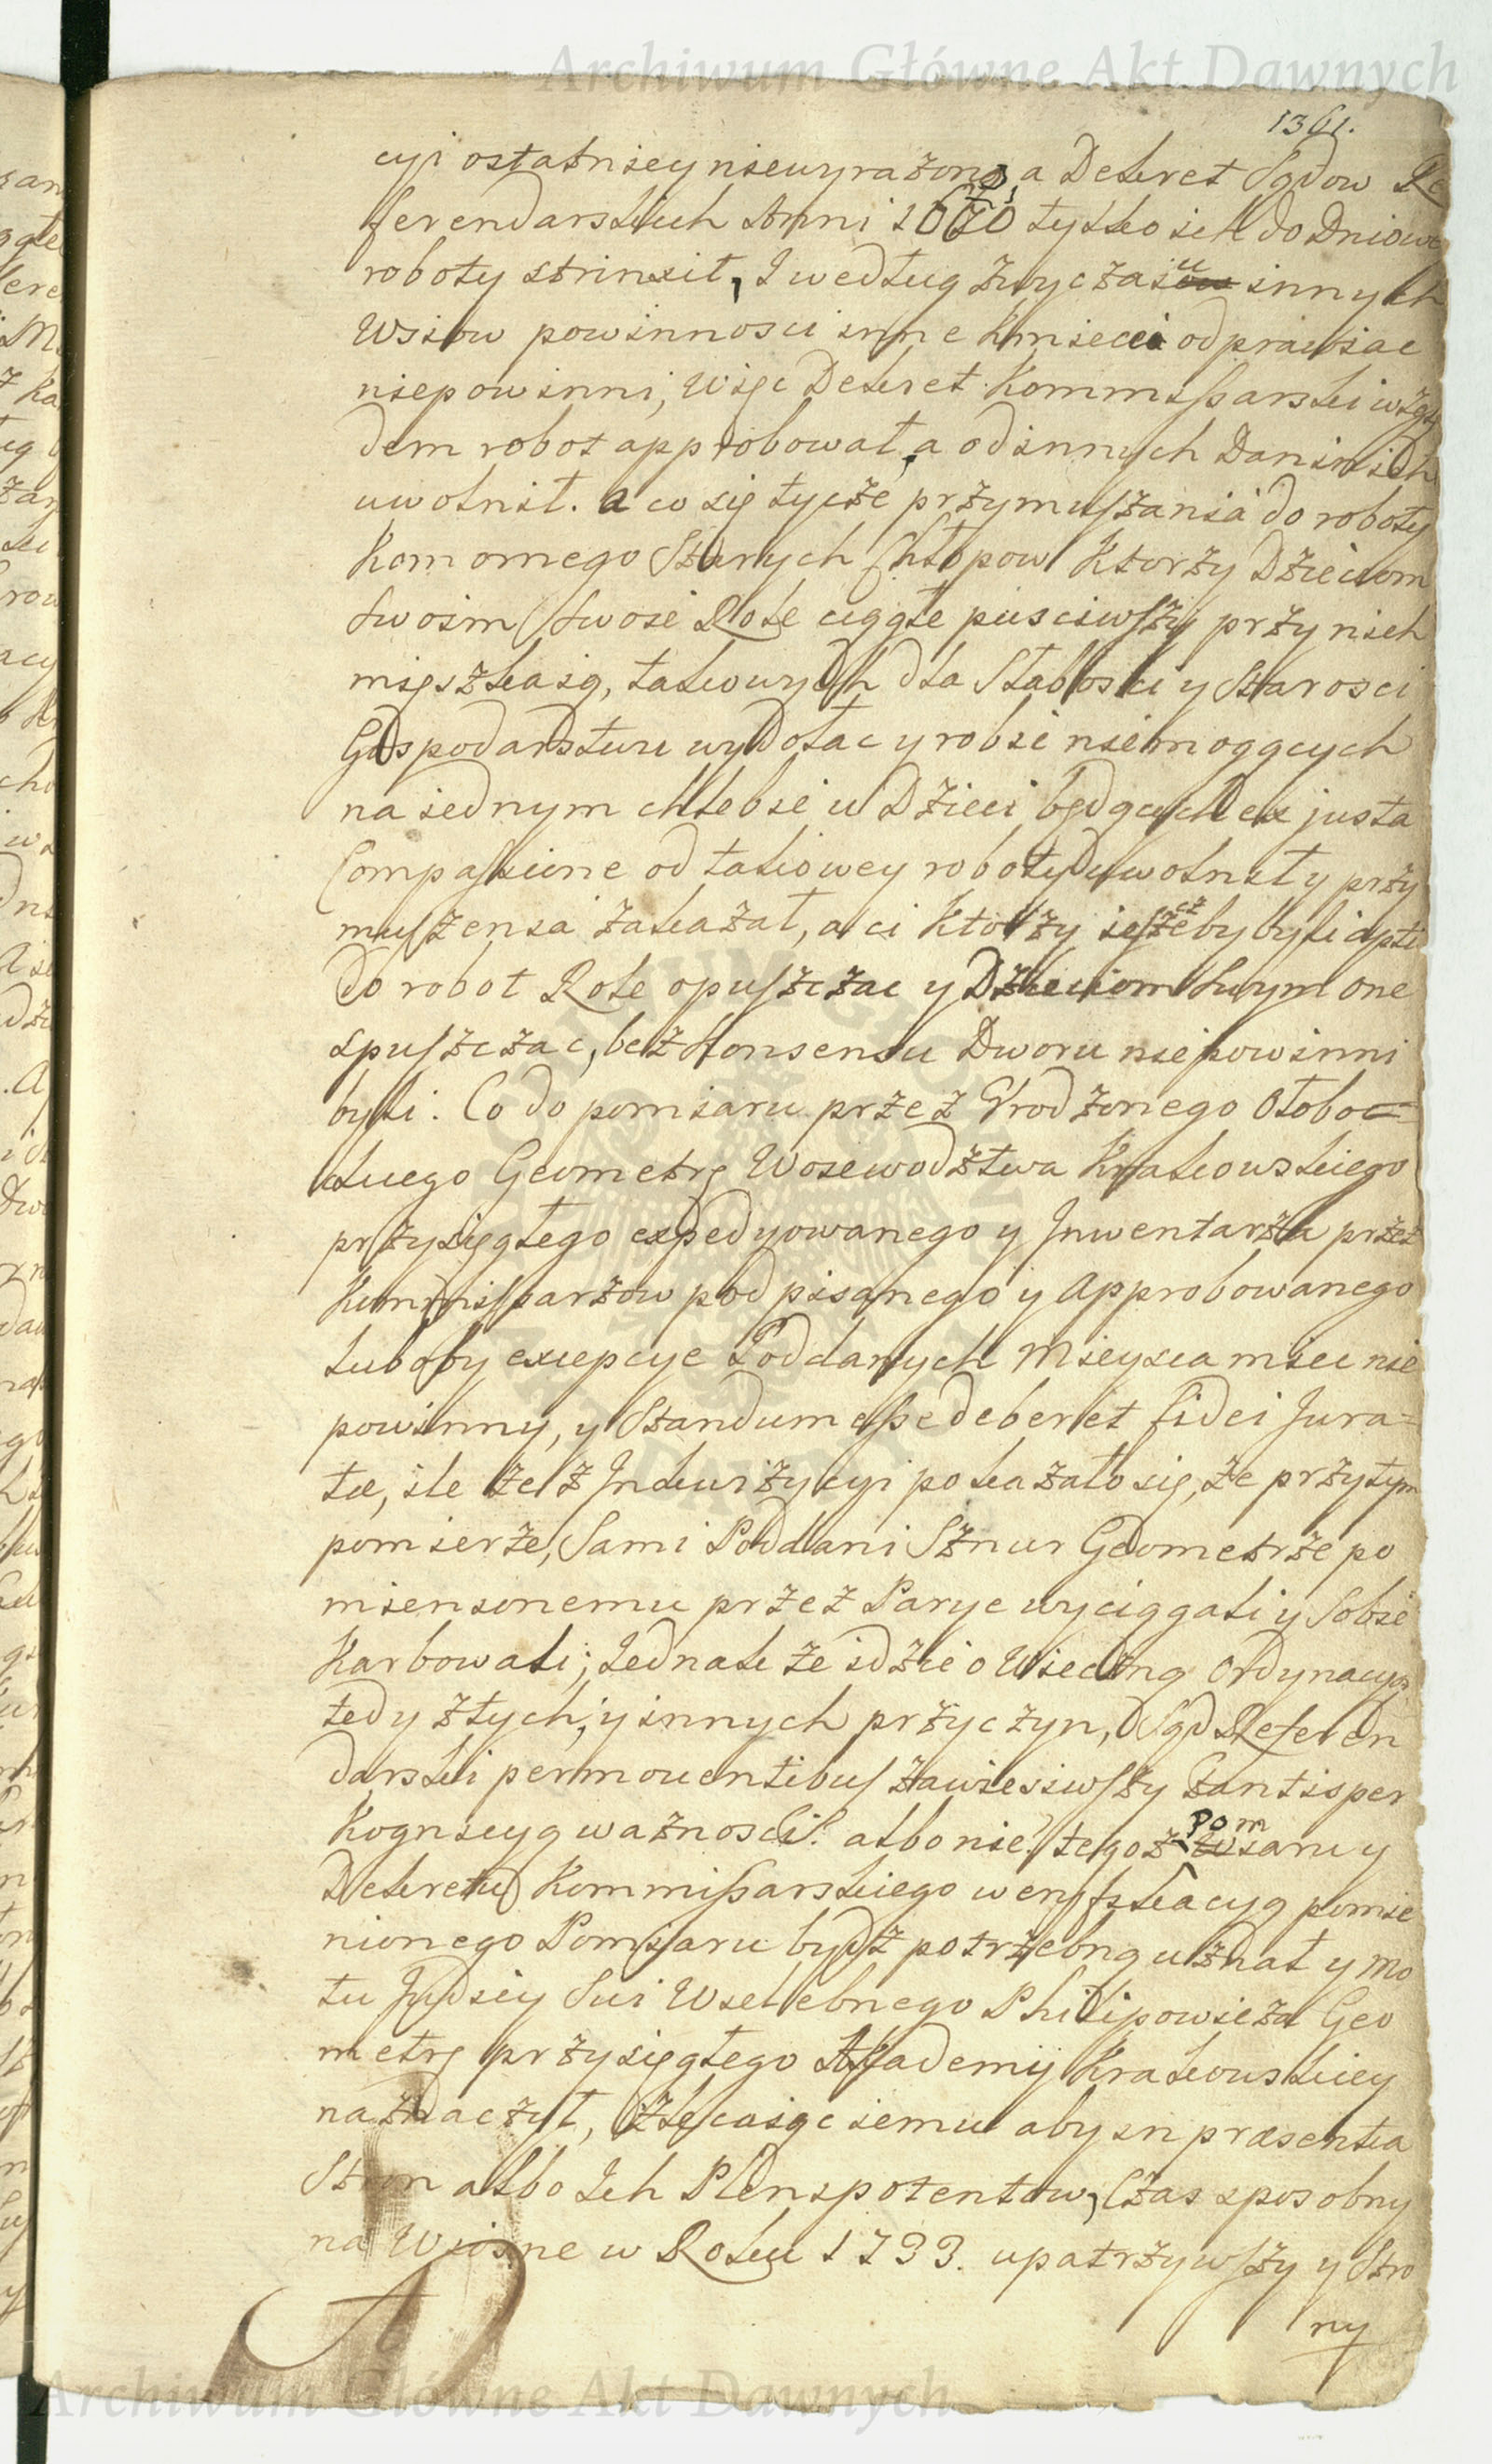 Archiwum Główne Akt Dawnych
1361.
cyi ostatniey niewyrażono, a Dekret Sądow Re
ferendarskich Anni 1670 tylko ich do Dniowe
roboty strinxit, I według zwyczaiu innych
Wsiow powinnosci inne Kmiecie odprawiac
niepowinni, Więc Dekret Kommissarski wzglę
dem robot approbował, a od innych Danin ich
uwolnił. a co się tycze przymuszania do roboty
Komornego Starych Chłopow Ktorzy Dzieciom
swoim swoie Role ciągłe puściwszy przy nich
mięszkaią, takowych dla Słabosci y Starosci
Gospodarstwu wydołac y robic niemogących
na iednym chlebie u Dzieci będących ex justa
Compassione od takowey roboty uwolnił y przy
muszenia zakazał, a ci Ktorzy ieszczeby byli apti
do robot Role opuszczac y Dzieciom swym one
spuszczac, bez Konsensu Dworu niepowinni
byli. Co do pomiaru przez Urodzonego Otoboc=
kiego Geometrę Woiewodztwa Krakowskiego
przysięgłego expedyowanego y Inwentarza przez
Kommissarzow podpisanego y Approbowanego
luboby excepcye Poddanych Mieysca miec nie
powinny, y Standum esse deberet fidei Jura=
tæ, ile że z Inkwizycyi pokazało się, że przy tym
pomierze, Sami Poddani Sznur Geometrze po
mienionemu przez Parye wyciągali y Sobie
Karbowali; Iednak że idzie o Wieczną Ordynacyą
tedy z tych, y innych przyczyn, Sąd Referen
darski permoventibus zawiesiwszy tantisper
Kognicyą ważnosci? albo nie? tegoż Pomiaru y
Dekretu Kommissarskiego weryfikacyą pomie
nionego Pomiaru bydź potrzebną uznał y mo
tu Judicij Sui Wielebnego Philipowicza Geo
metrę przysięgłego Akademij Krakowskiey
naznaczył, zlecaiąc iemu aby in præsentia
Stron albo Ich Plenipotentow, Czas sposobny
na Wiosnę w Roku 1793. upatrzywszy y Stro
ny
Archiwum Główne Akt Dawnych